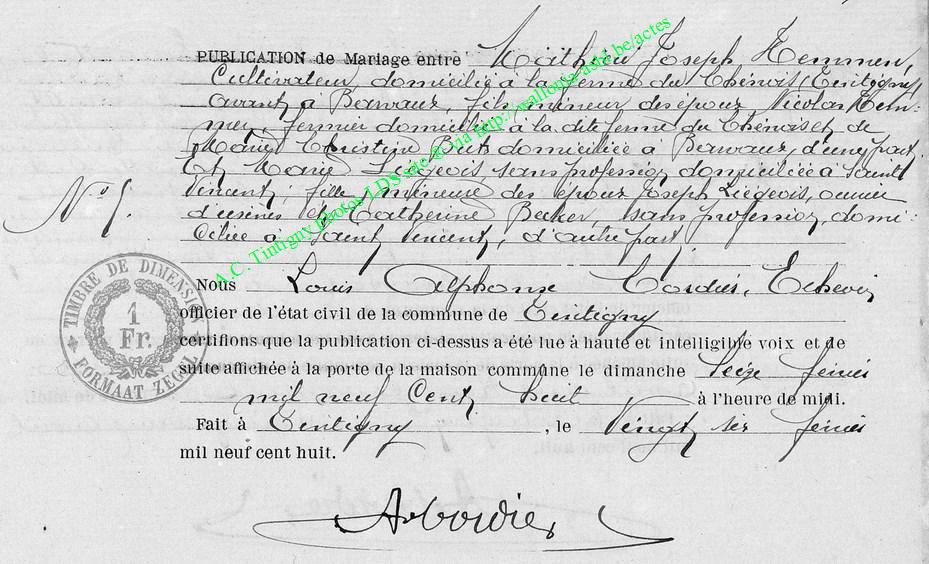 PUBLICATION de Mariage entre Mathieu Joseph Hemmen,
Cultivateur, domicilié à la ferme du Chênois, (Tintigny)
avant à Barvaux, fils mineur des époux Nicolas Hem-
mer, fermier domicilié à la dite ferme du Chênois et de
Marie Christine domiciliée à Barvaux, d'une part
Et Marie Liégeois, sans profession, domiciliée à Saint
Vincent, fille mineure des époux Joseph Liégeois, ouvrier
d'usines et Catherine Becker, sans profession, domi-
ciliée à Saint Vincent, d'autre part
Nous Louis Alphonse Cordier, Echevin
officier de l'état civil de la commune de Tintigny
certifions que la publication ci-dessus a été lue à haute et intelligible voix et de
suite affichée à la porte de la maison commune le dimanche Seize février
mil neuf Cent huit à l'heure de midi.
Fait à Tintigny, le Vingt six février
mil neuf cent huit.
A. Cordier
TIMBRE DE DIMENSION
1
Fr.
FORMAAT ZEGEL
A.C. Tintigny photos LDS site © via http://wallonia-asbl.be/actes